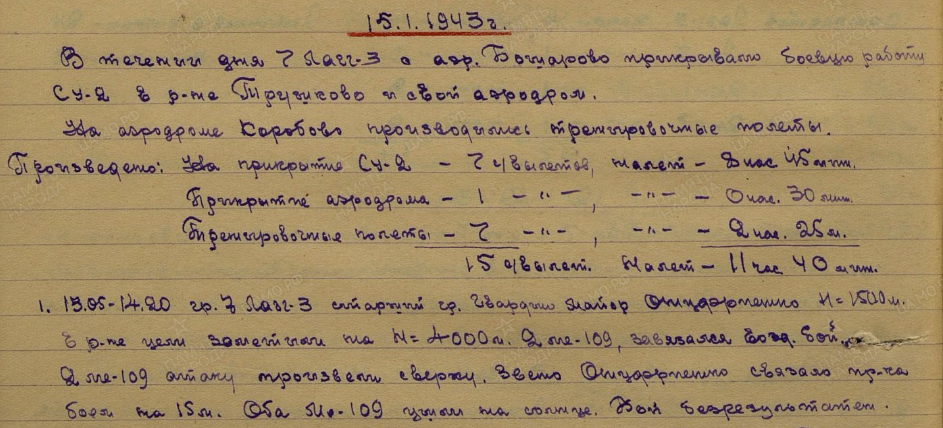 15.1.1943 г.
В течении дня 7 Лагг-3 с аэр. Бошарово прикрывало боевую работу
СУ-2 в р-не Глушково и свой аэродром.
На аэродроме Коробово производились тренировочные полеты.
Произведено: На прикрытие СУ-2 - 7 с/вылетов, налет - 8 час 45 мин.
Прикрытие аэродрома - 1 -"-, -"- - 0 час. 30 мин.
Тренировочные полеты - 7 -"-, -"- - 2 час. 25 м.
15 с/вылет. Налет - 11 час 40 мин.
1. 13.05-14.20 гр. 7 Лагг-3 старший гр. Гвардии майор H=1500 м.
В р-не цели заметили на H=4000 м. 2 ме-109, завязался возд. бой.
2 ме-109 атаку произвели сверху. Звено связало пр-ка
боем на 15 м. Оба Ме-109 ушли на солнце. Бой безрезультатен.